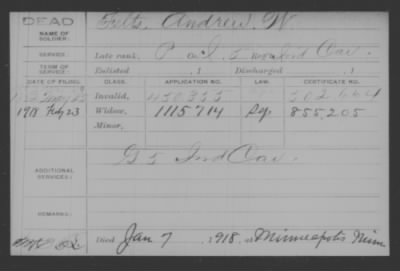 DEAD
NAME OF SOLDIER: Felts, Andrew W
SERVICE: Late rank, P Co. I, 5 Reg't Ind Cav.
TERM OF SERVICE: Enlisted , 1 Discharged , 1
DATE OF FILING. CLASS. APPLICATION NO. LAW. CERTIFICATE NO.
Invalid, 450353 302664
1918 Feby 23 Widow, 1115714 855.205
Minor,
G 5 Ind Cav.
ADDITIONAL SERVICES:
REMARKS:
Died Jan 7 1918, at Minneapolis Minn